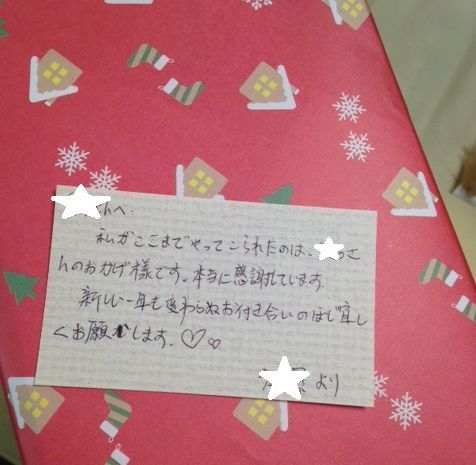 んへ.
私がここまでやってこられたのは、さ
んのおかげ様です。本当に感謝しています.
新しい年も変わらぬお付き合いのほど宜し
くお願いします。♡♡
より